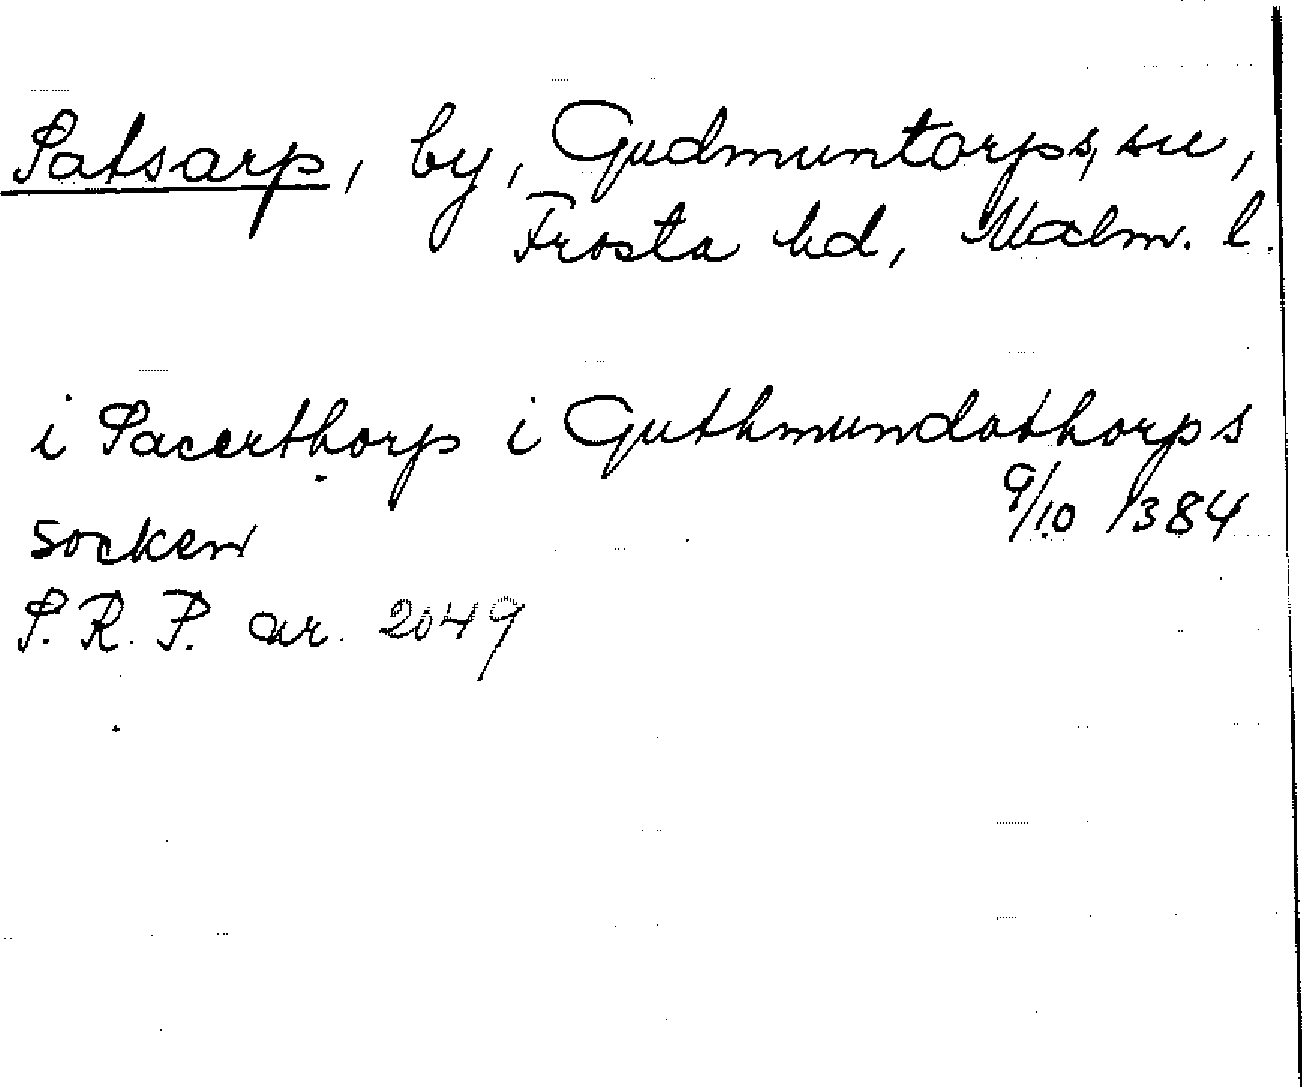 Satsarp, by, Gudmuntorps, sn,
Frosta hd, Malm. l.
i Sacerthorp i Guthmundathorps
socken 9/10 1384
S. R. P. nr. 2049